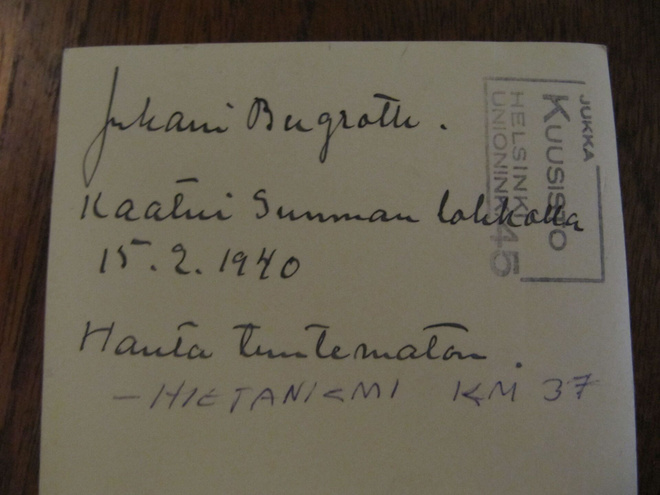 Juhani Bergroth.
Kaatui Summan lohkolla
15.2.1940
Hauta tuntematon.
– HIETANIEMI KM 37
JUKKA
KUUSISTO
HELSINKI
UNIONINK. 45